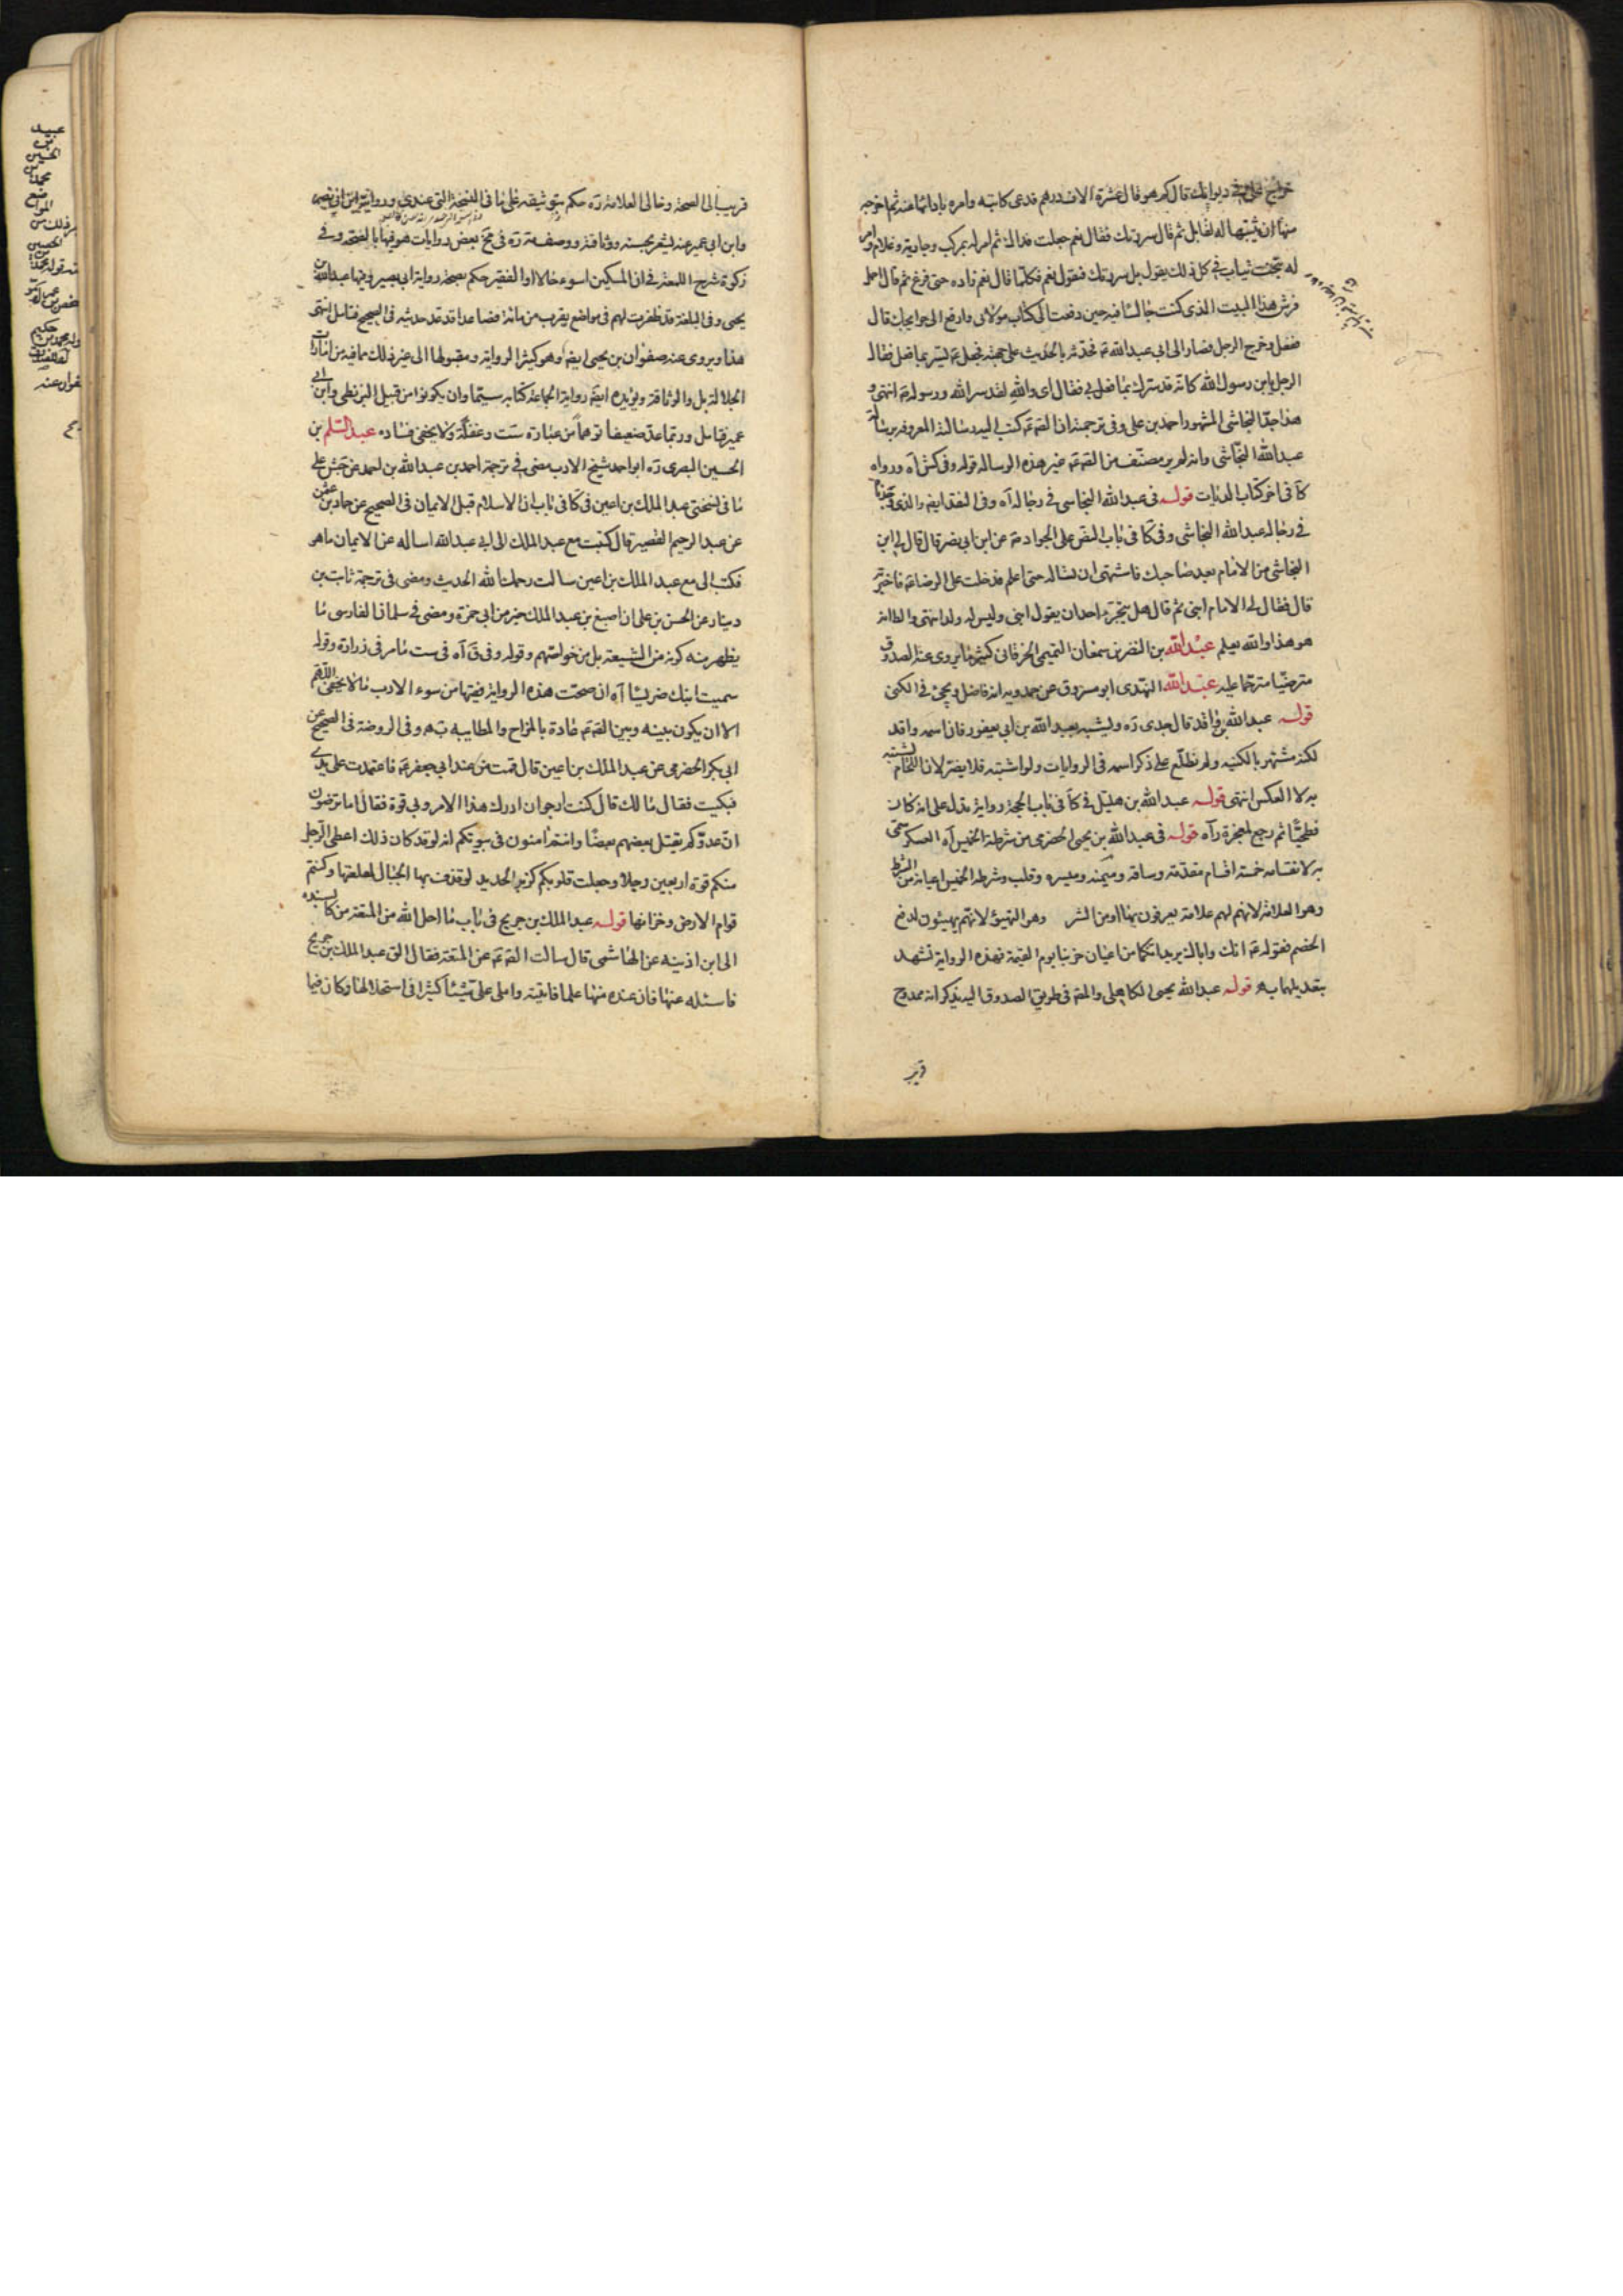 خراج على في ديوانك قال كم هو قال عشرة الاف درهم فدعى كاتبه وامره بادائها عنه ثم اخرجه
منها ان يثبتها له لقابل ثم قال سررتك فقال نعم جعلت فداك ثم امر له بمركب وجارية وغلام وامر
له بتخت ثياب في كل ذلك يقول هل سررتك فيقول نعم فكلما قال نعم زاده حتى فرغ ثم قال احمل
فرش هذا البيت الذي كنت جالسا فيه حين دفعت الى كتاب مولاي وارفع الى حوايجك قال
ففعل وخرج الرجل فصار الى ابي عبدالله ع فحدثه بالحديث على جهته فجعل ع يستر بما فعل فقال
الرجل يابن رسول الله كانه قد سرك بما فعل بي فقال اي والله لقد سر الله ورسوله انتهى و
هذا جد النجاشي المشهور احمد بن علي وفي ترجمته ان الصم ع كتب اليه رسالة المعروفة برسالة
عبدالله النجاشي وانه لم ير مصنف من الصم ع غير هذه الرسالة قوله وفي كش آه ورواه
كا في اخر كتاب الديات قوله في عبدالله النجاسي في رجاله آه وفي النقد ايضا والذي وجدنا
في رجاله عبدالله النجاشي وفي كا في باب النص على الجواد ع عن ابن ابي نصر قال قال لي ابن
النجاشي من الامام بعد صاحبك فاشتهى ان تسأله حتى اعلم فدخلت على الرضا ع فاخبرته
قال فقال لي الامام ابني ثم قال هل يجترء احد ان يقول ابني وليس له ولد انتهى والظ انه
هو هذا والله يعلم عبدالله بن النضر بن سمعان التميمي الخرقاني كثيرا ما يروي عنه الصدوق
مترضيا مترحما عليه عبدالله النهدي ابو مسروق عن حمدويه انه فاضل ويجئ في الكنى
قوله عبدالله بن واقد قال جدي ره ويشتبه بعبدالله بن ابي يعفور فان اسمه واقد
لكنه مشتهر بالكنيه ولم نطلع على ذكر اسمه في الروايات ولو اشتبه فلا يضر لان اللحام يشتبه
به لا العكس انتهى قوله عبدالله بن هليل في كا في باب الحجة رواية يدل على انه كان
فطحيا ثم رجع لمعجزة رآه قوله في عبدالله بن يحيى الحضرمي من شرطة الخميس آه العسكر سمى
به لانقسامه خمسة اقسام مقدمة وساقه وميمنه وميسره وقلب وشرطه الخميس اعيانه من الشرط
وهو العلامة لانهم لهم علامة يعرفون بها او من الشر وهو التهيؤ لانهم يهيئون لدفع
الخصم فقوله ع انك واباك يريد انكما من اعيان حزبنا يوم القيمة فهذه الرواية تشهد
بتعديلهما به قوله عبدالله يحيى الكاهلي والمص في طريق الصدوق اليه يذكر انه ممدوح
قريب
قريب الى الصحة وخالى العلامة ره حكم بتوثيقه على ما في النسخة التي عندي ورواية ابن ابي نصر
وابن ابي عمير عنه يشعر بحسنه ووثاقته ووصف مة ره في مخ بعض روايات هو فيها بالصحة وفي
زكوة شرح اللمعة في ان المسكين اسوء حالا او الفقير حكم بصحة رواية ابي بصير وفيها عبدالله بن
يحيى وفي البلغة قد ظفرت لهم في مواضع يقرب من مائة فصاعدا قد عد حديثه في الصحيح فتامل انتهى
هذا ويروى عنه صفوان بن يحيى ايضا وهو كثير الرواية ومقبولها الى غير ذلك مما فيه من امارات
الجلالة بل والوثاقة ويؤيده ايضا رواية الجماعة كتابه سيما وان يكونوا من قبيل البزنطي وابن ابي
عمير فتامل وربما عد ضعيفا توهما من عبارة ست وغفلة ولا يخفى فساده عبدالسلم بن
الحسين البصري ره ابو احمد شيخ الادب مضى في ترجمة احمد بن عبدالله بن احمد عن جش على
ما في نسختي عبد الملك بن اعين في كا في باب ان الاسلام قبل الايمان في الصحيح عن حماد بن عثمن
عن عبد الرحيم القصير قال كتبت مع عبد الملك الى ابي عبدالله اساله عن الايمان ما هو
فكتب الى مع عبد الملك بن اعين سالت رحمك الله الحديث ومضى في ترجمة ثابت بن
دينار عن الحسن بن علي ان اصبغ بن عبد الملك خير من ابي حمزة ومضى في سلمان الفارسي ما
يظهر منه كونه من الشيعة بل من خواصهم وقوله وفي ق آه في ست ما مر في زرارة وقوله
سميت ابنك ضريسا آه ان صحت هذه الرواية ففيها من سوء الادب ما لا يخفى اللهم
الا ان يكون بينه وبين الصم ع عادة بالمزاح والمطايبه به وفي الروضة في الصحيح عن
ابي بكر الحضرمي عن عبد الملك بن اعين قال قمت من عند ابي جعفر ع فاعتمدت على يدي
فبكيت فقال مالك قال كنت ارجوان ادرك هذا الامر وبي قوة فقال اما ترضون
ان عدوكم يقتل بعضهم بعضا وانتم امنون في بيوتكم انه لو قد كان ذلك اعطى الرجل
منكم قوة اربعين رجلا وجعلت قلوبكم كزبر الحديد لو قذف بها الجبال لقلعتها وكنتم
قوام الارض وخزانها قوله عبد الملك بن جريج في باب ما احل الله من المتعة من كا بسنده
الى ابن اذينه عن الهاشمي قال سالت الصم ع عن المتعة فقال الق عبد الملك بن جريح
فاسئله عنها فان عنده منها علما فاتيته واملى على شيئا كثيرا في استحلالها وكان فيما
عبيد
بن
الحسين
محمد بن
المواضع
الحسين
حكيم